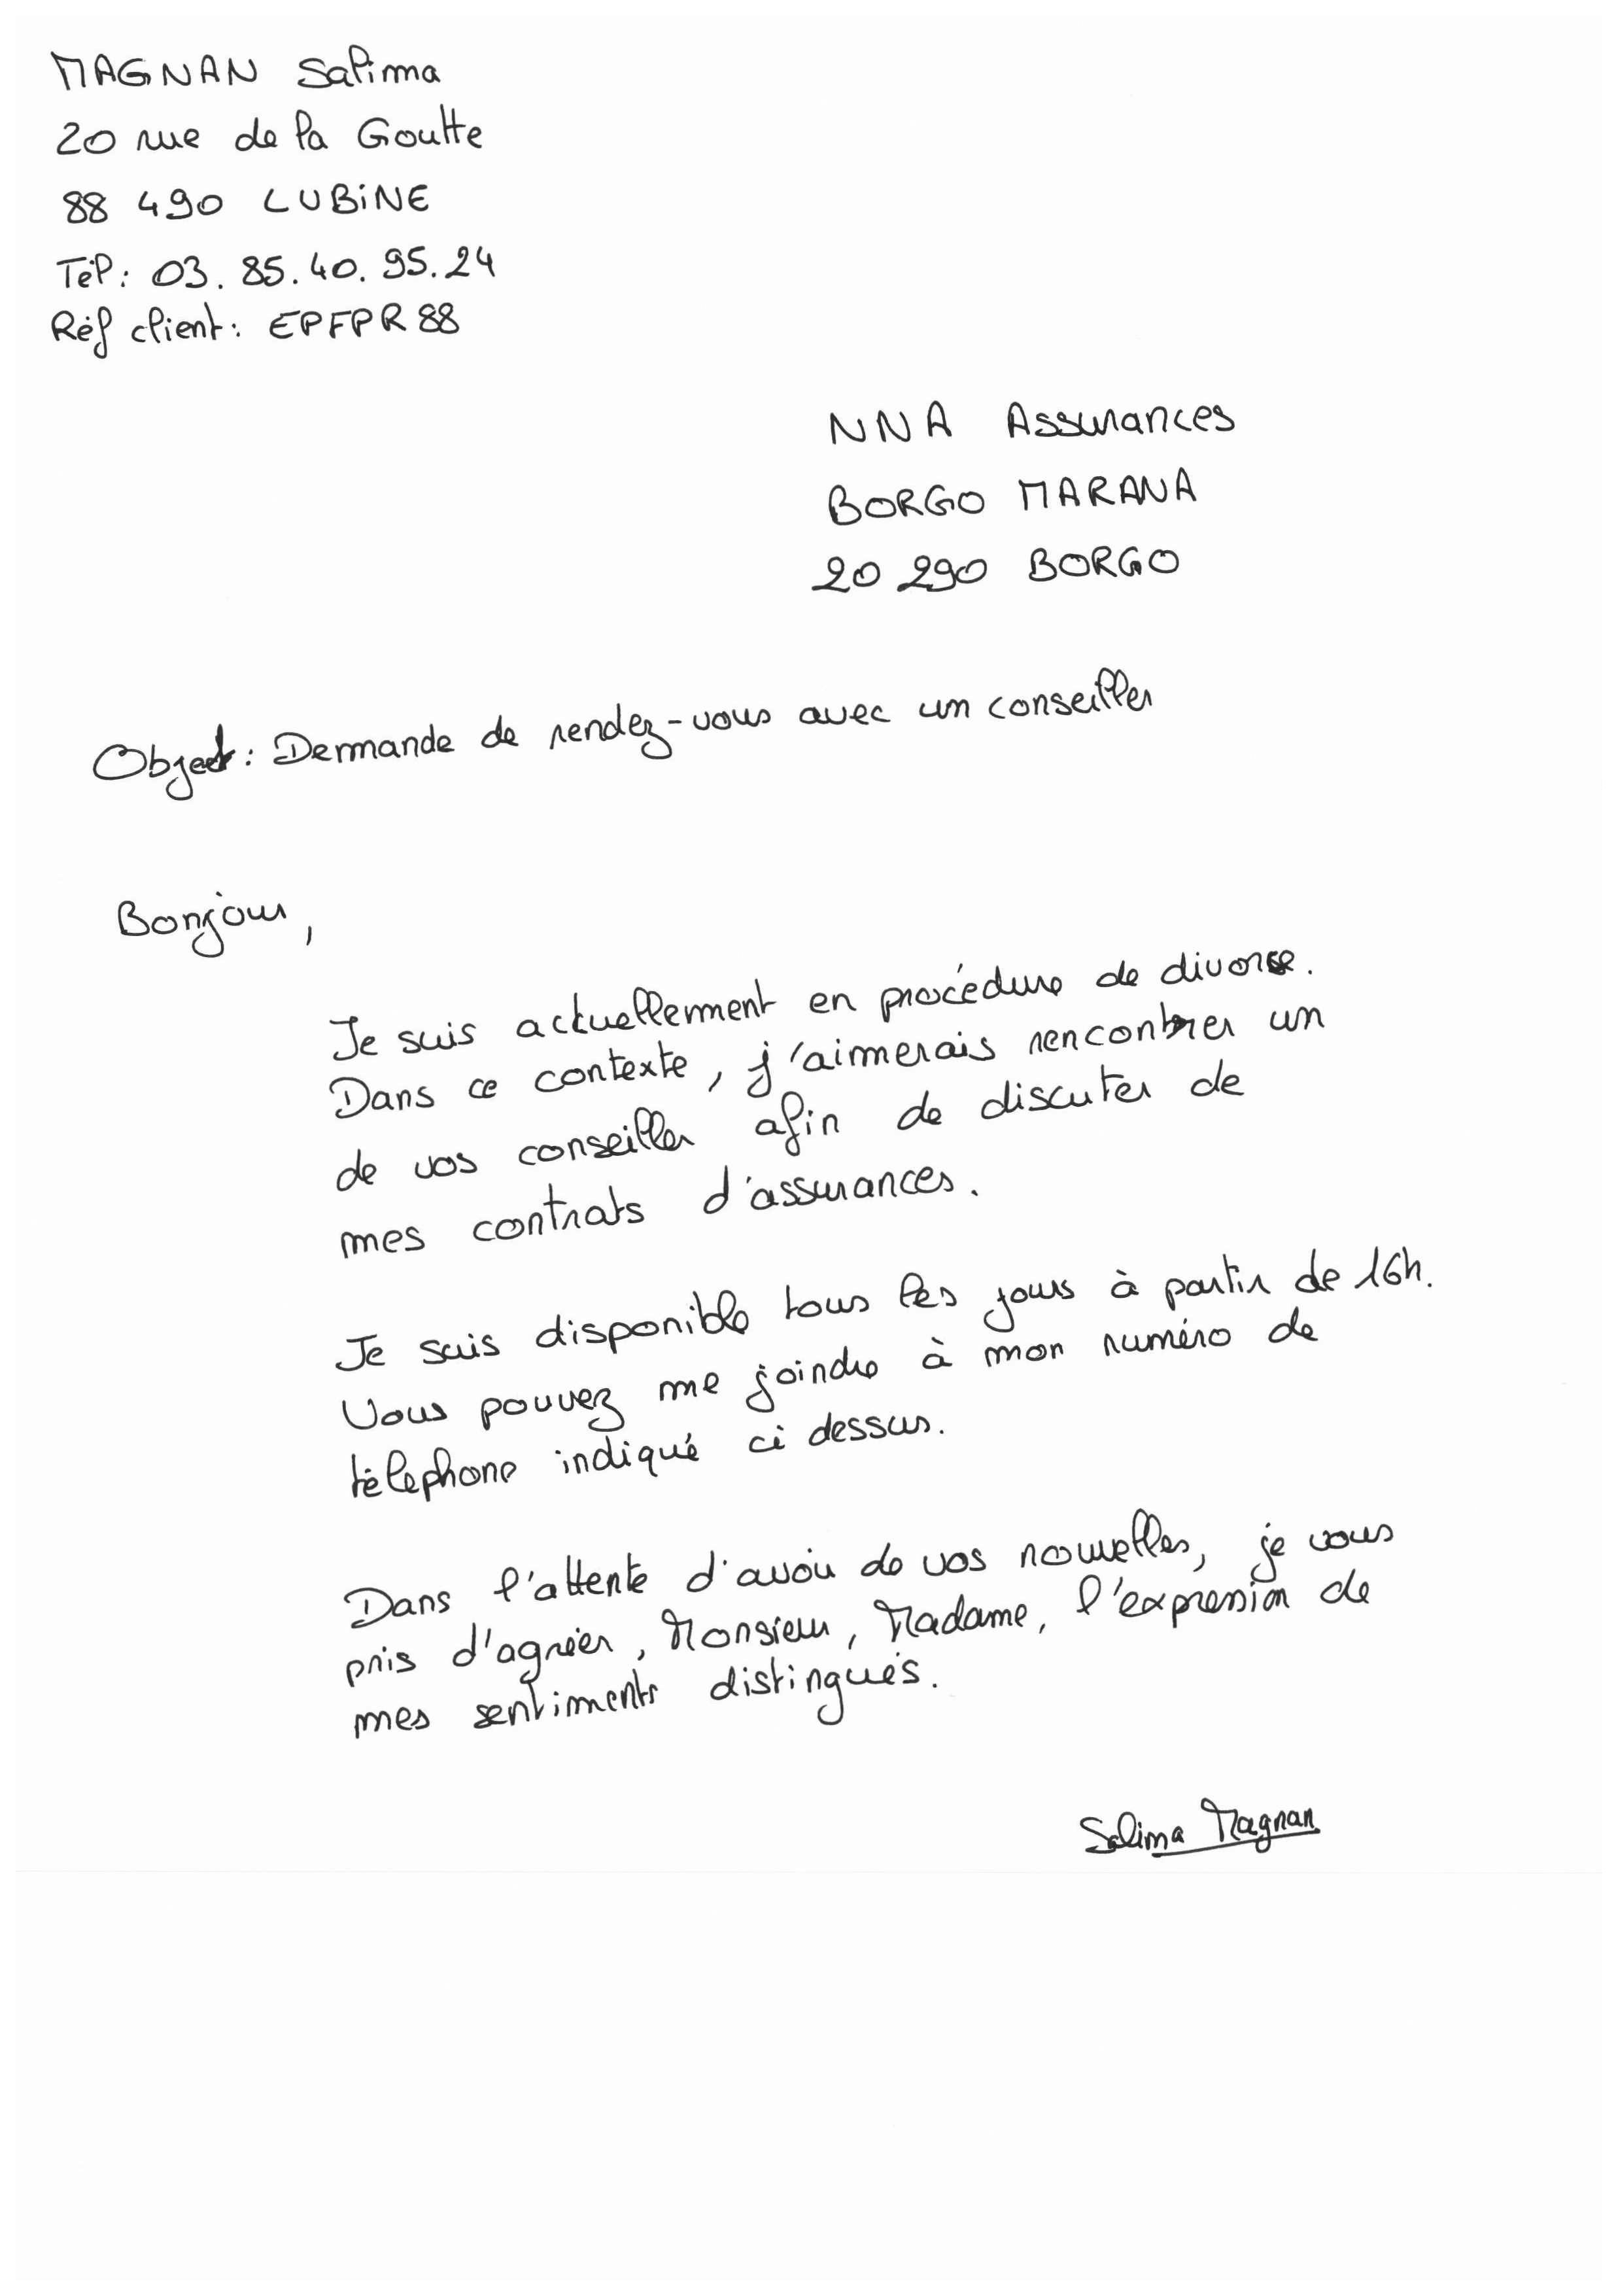 MAGNAN Salima
20 rue de la Goutte
88 490 LUBINE
Tél: 03. 85. 40. 95. 24
Réf client: EPFPR88
NNA Assurances
BORGO MARANA
20 290 BORGO
Objet: Demande de rendez-vous avec un conseiller
Bonjour,
Je suis actuellement en procédure de divorce.
Dans ce contexte, j'aimerais rencontrer un
de vos conseiller afin de discuter de
mes contrats d'assurances.
Je suis disponible tous les jours à partir de 16h.
Vous pouvez me joindre à mon numéro de
téléphone indiqué ci dessus.
Dans l'attente d'avoir de vos nouvelles, je vous
pris d'agréer, Monsieur, Madame, l'expression de
mes sentiments distingués.
Salima Magnan